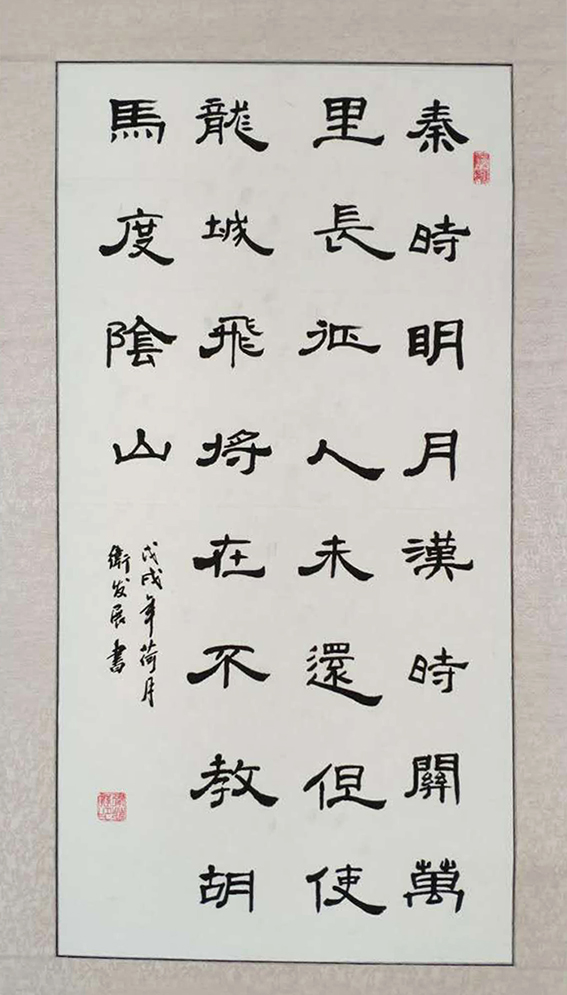 秦時明月漢時關萬
里長征人未還但使
龍城飛將在不教胡
馬度陰山
戊戌年荷月
衛发展書